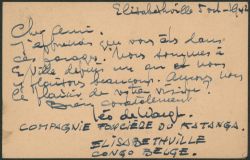 Elisabethville 5 oct. 1942
Cher ami.
J'apprends que vous êtes dans
ces parages. Nous sommes à
E'ville depuis un an et nous
beaucoup. Aurons nous
le plaisir de votre visite?
Bien cordialement
Léo de
COMPAGNIE FONCIÈRE DU KATANGA.
ELISABETHVILLE
CONGO BELGE.